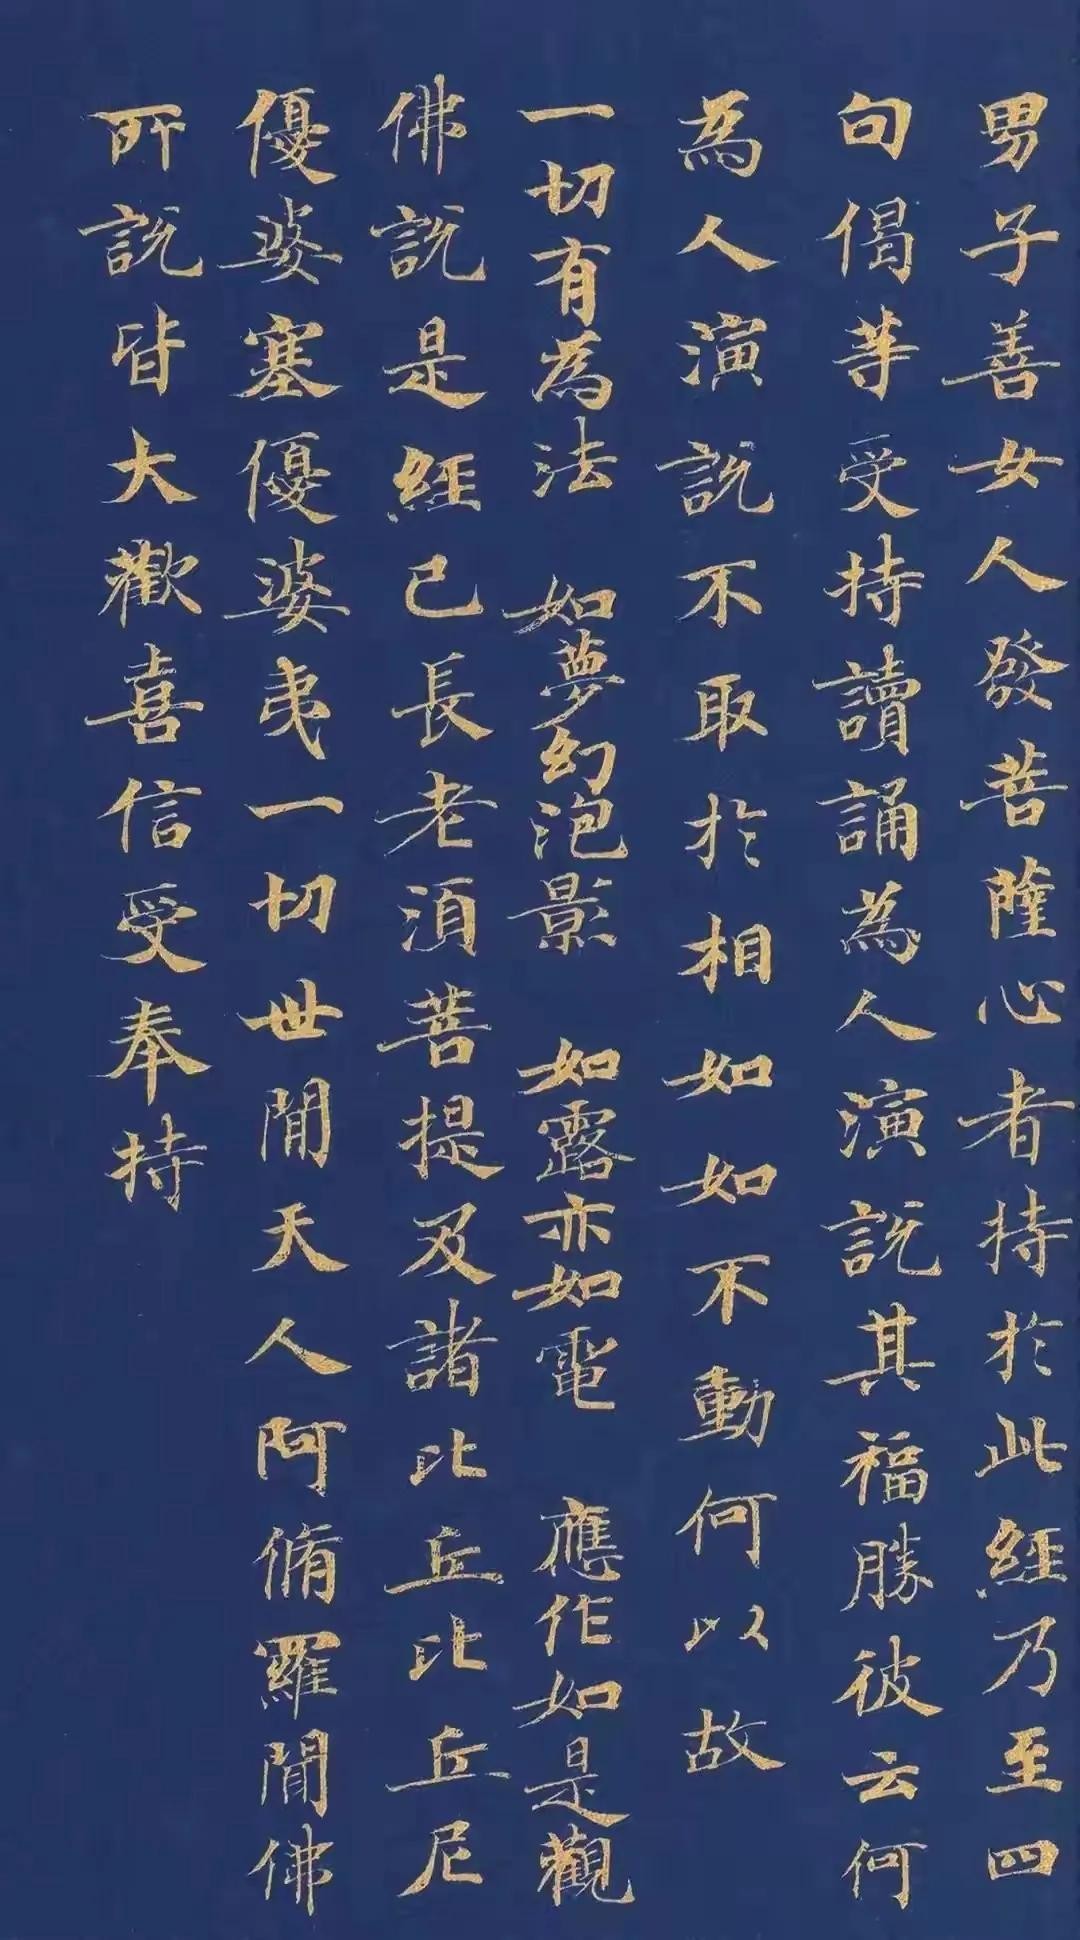 男子善女人發菩薩心者持於此經乃至四
句偈等受持讀誦為人演説其福勝彼云何
為人演説不取於相如如不動何以故
一切有為法　如夢幻泡影　如露亦如電　應作如是觀
佛説是經已長老湏菩提及諸比丘比丘尼
優婆塞優婆夷一切世間天人阿脩羅聞佛
所説皆大歡喜信受奉持